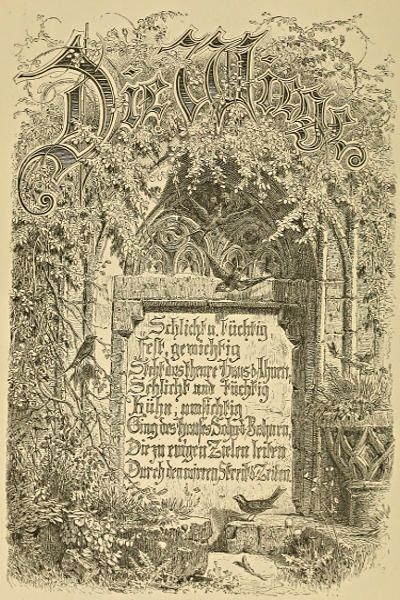 Die Wiege.
Schlicht u. tüchtig
Fest, gewichtig
Steht das theure Haus d. Ahnen.
Schlicht und tüchtig
Kühn, umsichtig
Ging des Hauses Sohn d. Bahnen,
Die zu ewigen Zielen leiten
Durch den wirren Streit d. Zeiten.